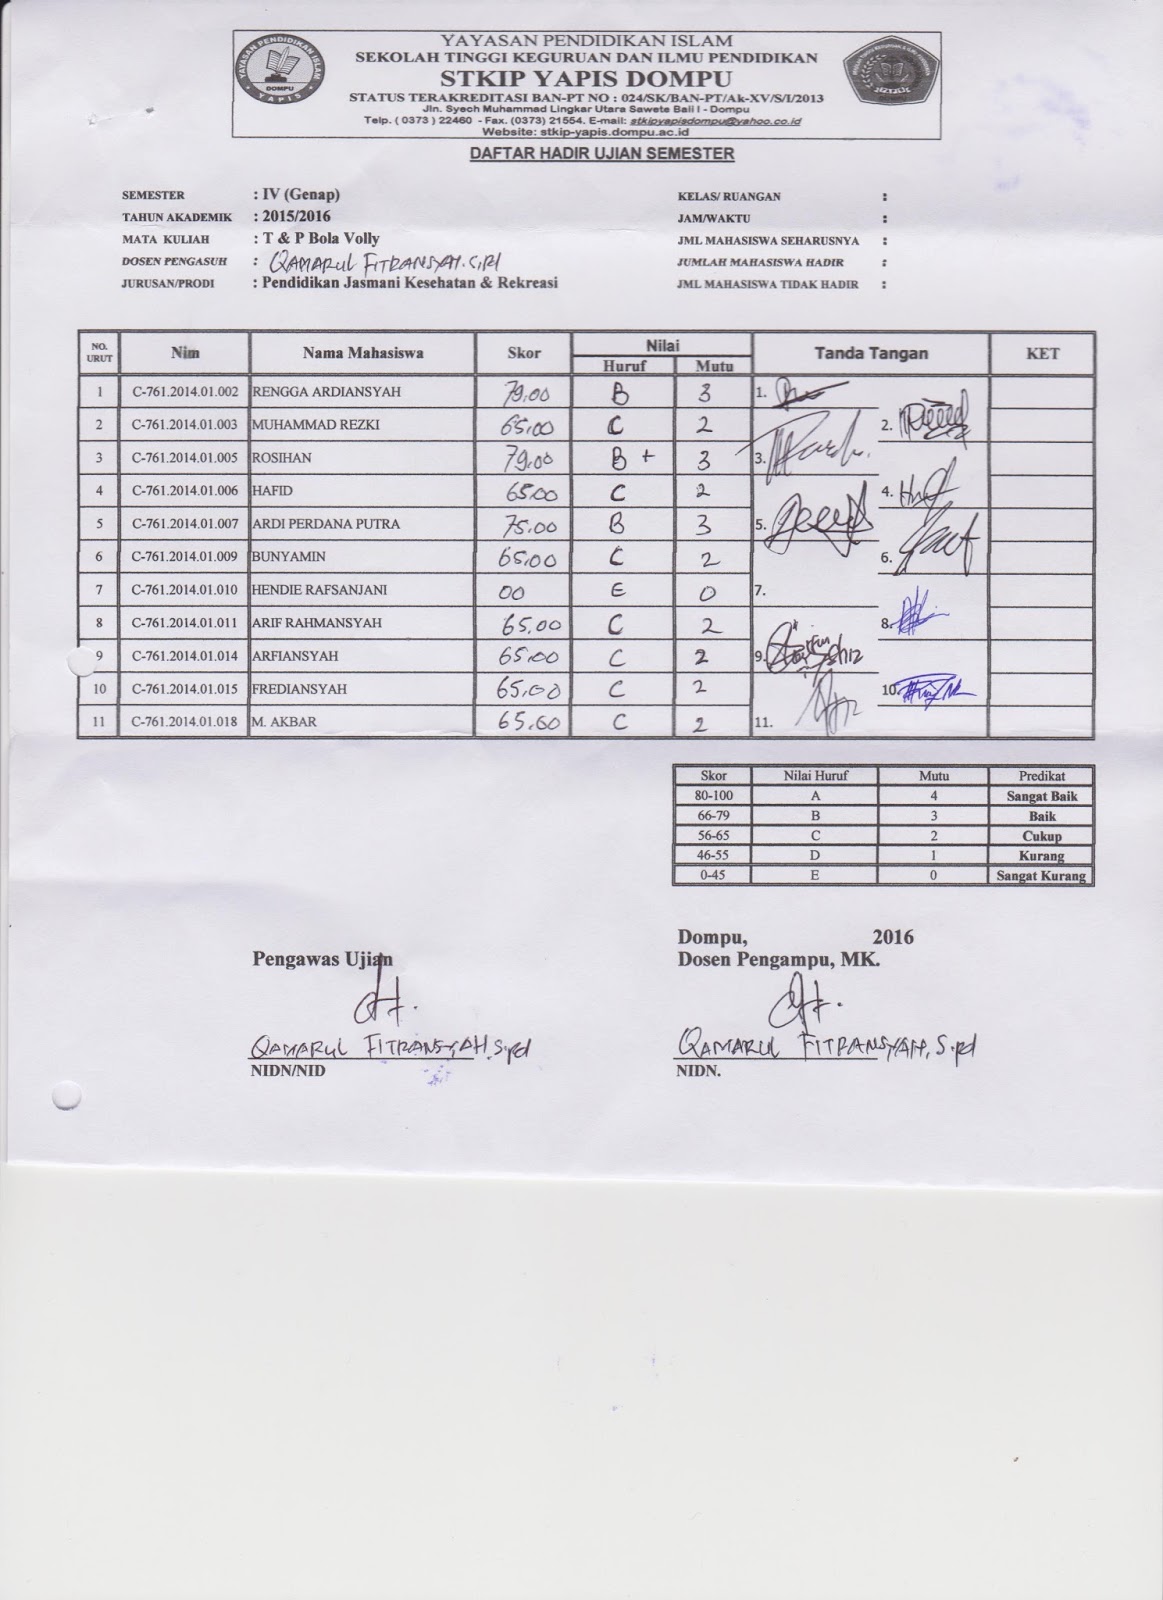 YAYASAN PENDIDIKAN ISLAM
SEKOLAH TINGGI KEGURUAN DAN ILMU PENDIDIKAN
STKIP YAPIS DOMPU
STATUS TERAKREDITASI BAN-PT NO : 024/SK/BAN-PT/Ak-XV/S/I/2013
Jln. Syech Muhammad Lingkar Utara Sawete Bali I - Dompu
Telp. ( 0373 ) 22460 - Fax. (0373) 21554. E-mail: stkipyapisdompu@yahoo.co.id
Website: stkip-yapis.dompu.ac.id
YAYASAN PENDIDIKAN ISLAM
DOMPU
YAPIS
DAFTAR HADIR UJIAN SEMESTER
SEMESTER : IV (Genap) KELAS/ RUANGAN :
TAHUN AKADEMIK : 2015/2016 JAM/WAKTU :
MATA KULIAH : T & P Bola Volly JML MAHASISWA SEHARUSNYA :
DOSEN PENGASUH : QAMARUL FITRANSYAH. S.Pd JUMLAH MAHASISWA HADIR :
JURUSAN/PRODI : Pendidikan Jasmani Kesehatan & Rekreasi JML MAHASISWA TIDAK HADIR :
NO. URUT Nim Nama Mahasiswa Skor Nilai Tanda Tangan KET
Huruf Mutu
1 C-761.2014.01.002 RENGGA ARDIANSYAH 79.00 B 3 1.
2 C-761.2014.01.003 MUHAMMAD REZKI 65.00 C 2 2.
3 C-761.2014.01.005 ROSIHAN 79.00 B + 3 3.
4 C-761.2014.01.006 HAFID 65.00 C 2 4.
5 C-761.2014.01.007 ARDI PERDANA PUTRA 75.00 B 3 5.
6 C-761.2014.01.009 BUNYAMIN 65.00 C 2 6.
7 C-761.2014.01.010 HENDIE RAFSANJANI 00 E 0 7.
8 C-761.2014.01.011 ARIF RAHMANSYAH 65.00 C 2 8.
9 C-761.2014.01.014 ARFIANSYAH 65.00 C 2 9.
10 C-761.2014.01.015 FREDIANSYAH 65.00 C 2 10.
11 C-761.2014.01.018 M. AKBAR 65.00 C 2 11.
Skor Nilai Huruf Mutu Predikat
80-100 A 4 Sangat Baik
66-79 B 3 Baik
56-65 C 2 Cukup
46-55 D 1 Kurang
0-45 E 0 Sangat Kurang
Dompu, 2016
Pengawas Ujian Dosen Pengampu, MK.
QAMARUL FITRANSYAH. S.pd QAMARUL FITRANSYAH. S.pd
NIDN/NID NIDN.